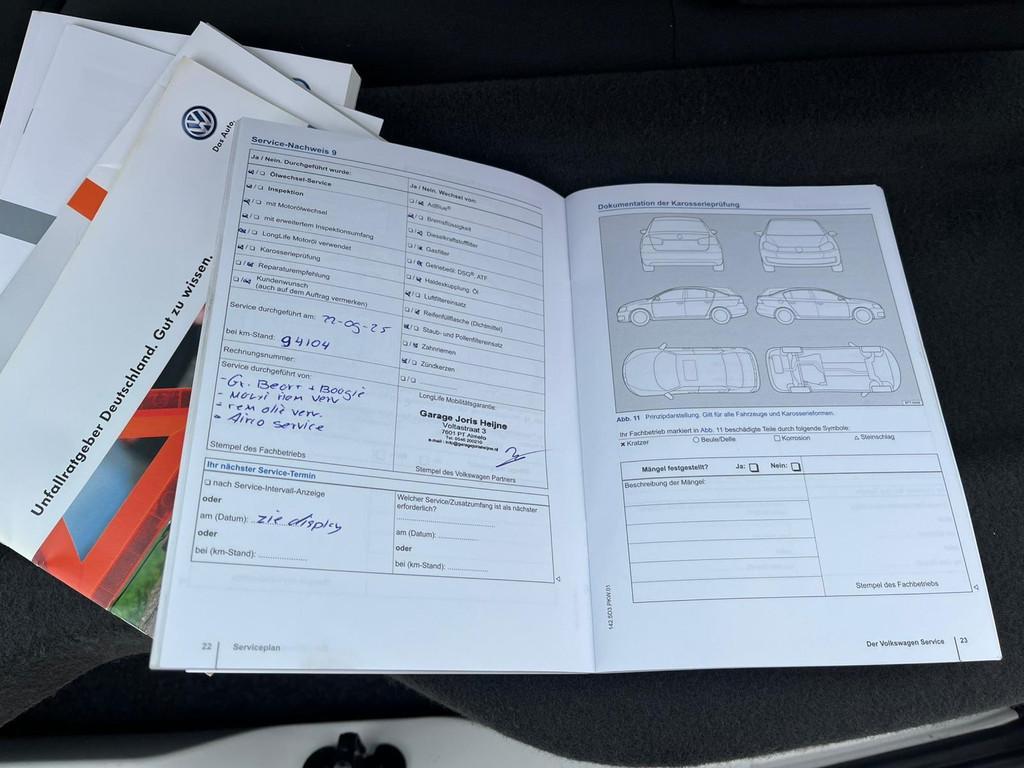 Das Auto.
Unfallratgeber Deutschland. Gut zu wissen.
Service-Nachweis 9
Ja / Nein. Durchgeführt wurde:
Ölwechsel-Service
Inspektion
mit Motorölwechsel
mit erweitertem Inspektionsumfang
LongLife Motoröl verwendet
Karosserieprüfung
Reparaturempfehlung
Kundenwunsch
(auch auf dem Auftrag vermerken)
Ja / Nein. Wechsel von:
AdBlue®
Bremsflüssigkeit
Dieselkraftstofffilter
Gasfilter
Getriebeöl: DSG®, ATF
Haldexkupplung: Öl
Luftfiltereinsatz
Reifenfüllflasche (Dichtmittel)
Staub- und Pollenfiltereinsatz
Zahnriemen
Zündkerzen
Service durchgeführt am: 22-05-25
bei km-Stand: 94104
Rechnungsnummer:
Service durchgeführt von:
- Gr. Beurt + Bougie
- rem olie verv.
- Airco service
Stempel des Fachbetriebs
LongLife Mobilitätsgarantie:
Garage Joris Heijne
Voltastraat 3
7601 PT Almelo
Stempel des Volkswagen Partners
Ihr nächster Service-Termin
nach Service-Intervall-Anzeige
oder
am (Datum): zie display
oder
bei (km-Stand):
Welcher Service/Zusatzumfang ist als nächster
erforderlich?
am (Datum):
oder
bei (km-Stand):
22 Serviceplan
Dokumentation der Karosserieprüfung
Abb. 11 Prinzipdarstellung. Gilt für alle Fahrzeuge und Karosserieformen.
Ihr Fachbetrieb markiert in Abb. 11 beschädigte Teile durch folgende Symbole:
Kratzer Beule/Delle Korrosion Steinschlag
Mängel festgestellt? Ja: Nein:
Beschreibung der Mängel:
Stempel des Fachbetriebs
142.5D3.PKW.01
Der Volkswagen Service 23